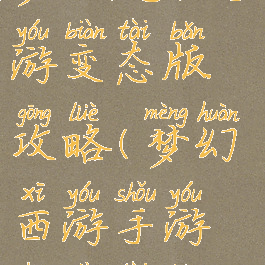 yóu biàn tài bǎn
游变态版
gōng lüè mèng huàn
攻略(梦幻
xī yóu shǒu yóu
西游手游